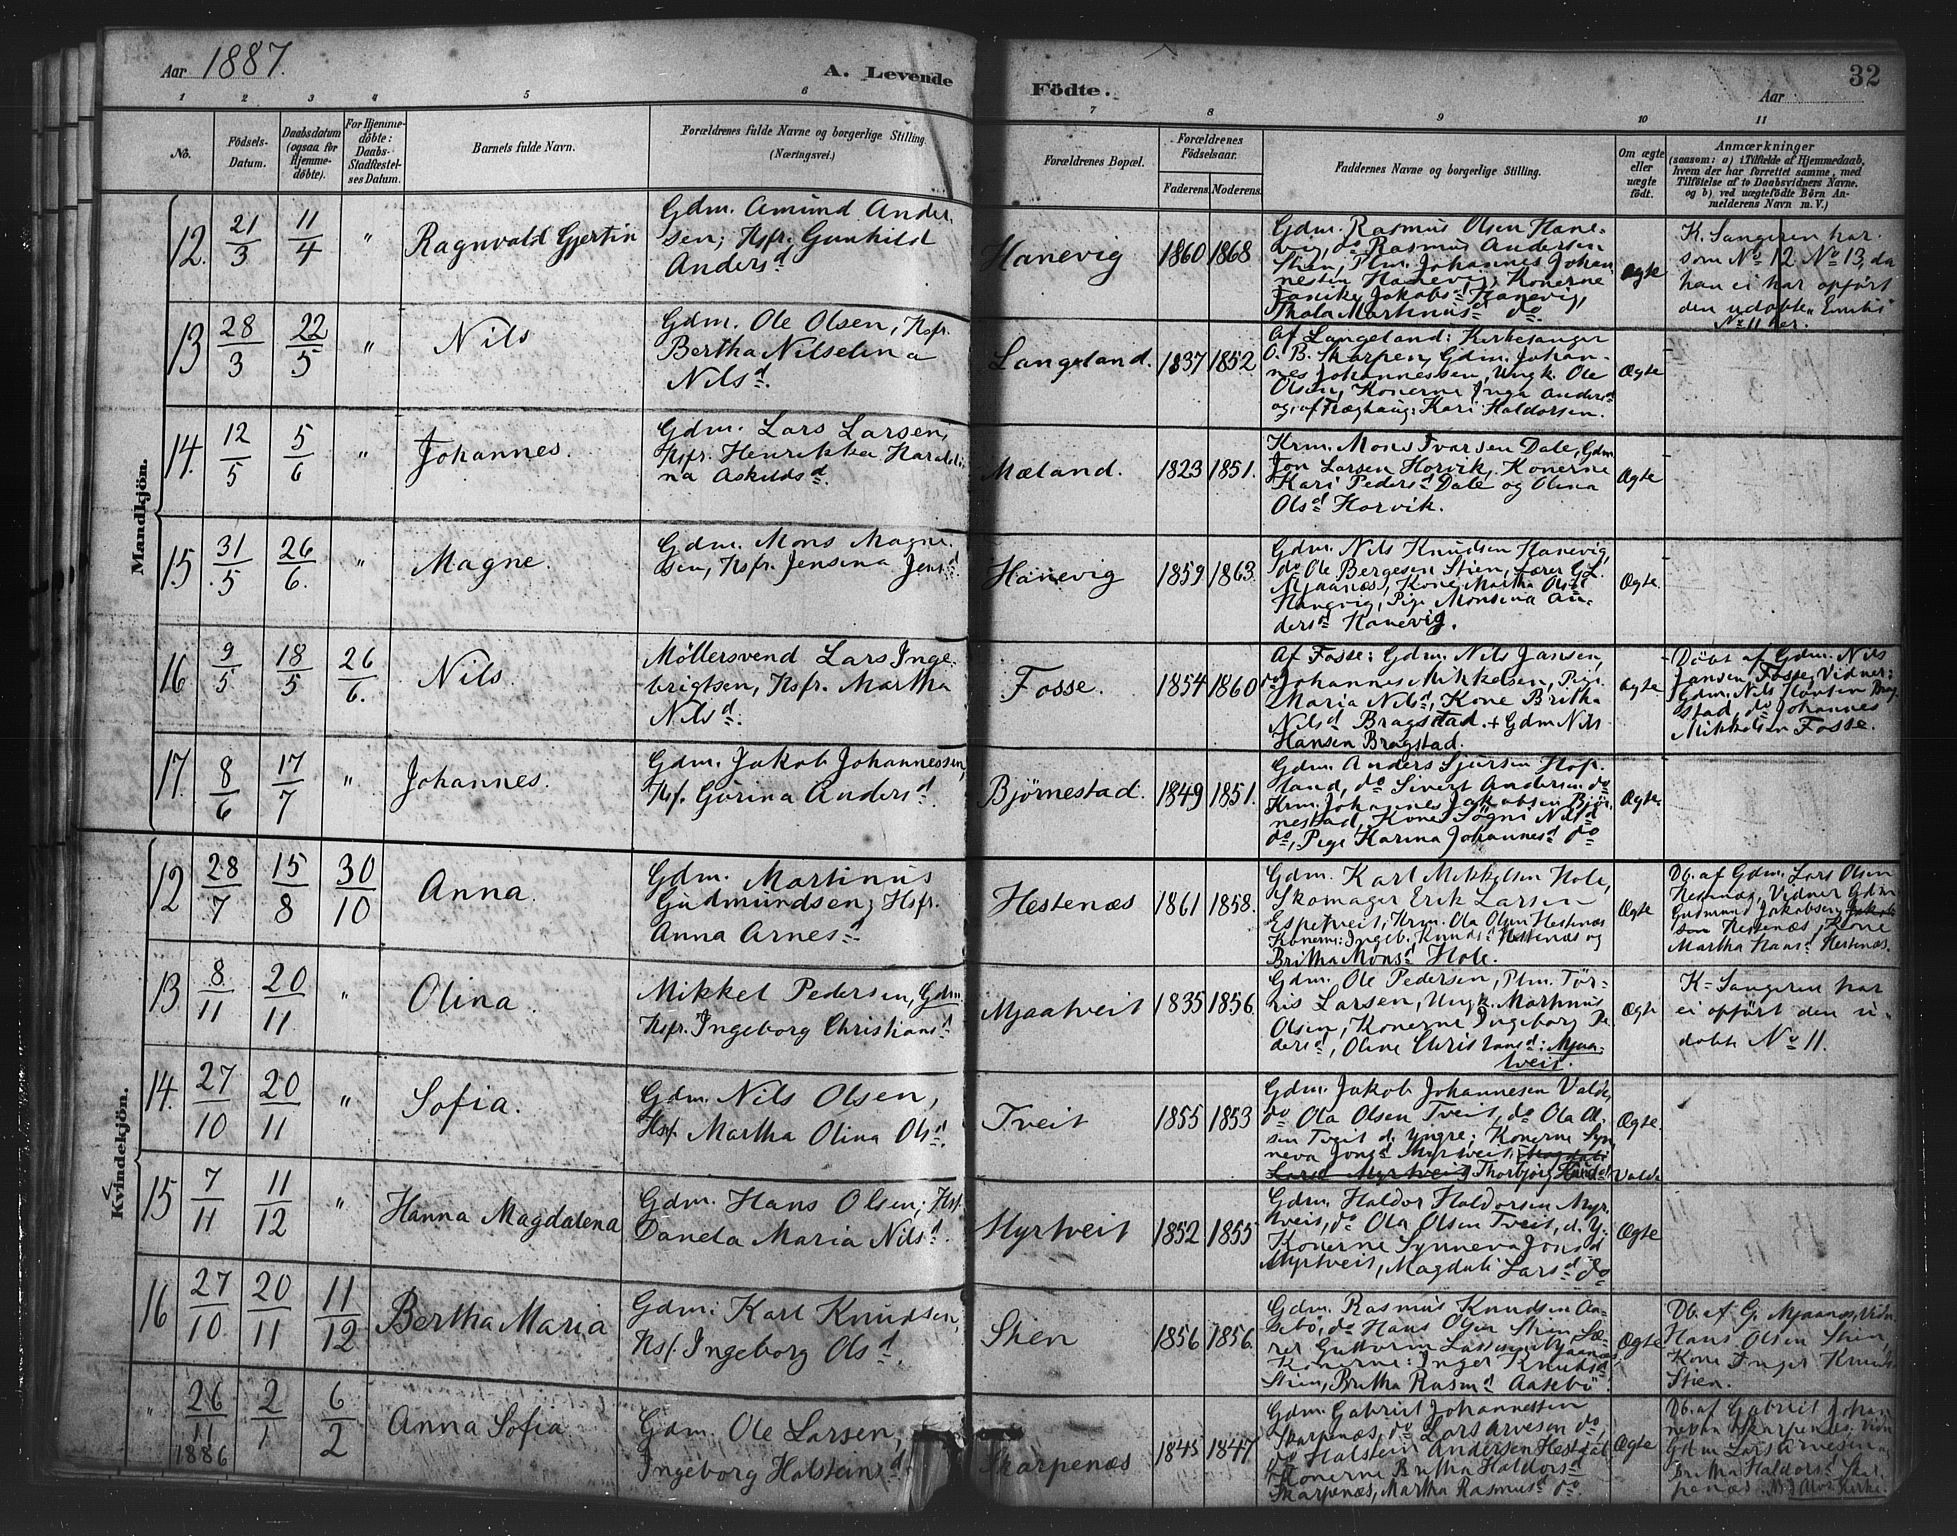 Aar 1887.
A. Levende
Födte.
Aar
32
1 2 3 4 5 6 7 8 9 10 11
No.
Födsels-
Datum.
Daabsdatum
(ogsaa for
Hjemme-
döbte).
For Hjemme-
döbte:
Daabs-
Stadfæstel-
ses Datum.
Barnets fulde Navn.
Forældrenes fulde Navne og borgerlige Stilling.
(Næringsvei.)
Forældrenes Bopæl.
Forældrenes
Födselsaar.
Faderens. Moderens.
Faddernes Navne og borgerlige Stilling.
Om ægte
eller
uægte
födt.
Anmærkninger
(saasom: a) i Tilfælde af Hjemmedaab,
hvem der har forrettet samme, med
Tilföielse af to Daabsvidners Navne.
og b) ved uægtefödte Börn An-
melderens Navn m. V.)
Mandkjön.
12. 21/3 11/4 " Ragnvald Gjertin
Gdm. Amund Ander-
sen, Hsfr. Gunhild
Andersd
Hanevig 1860 1868
Gdm. Rasmus Olsen Hane-
vig, do Rasmus Andersen
Stien, Plm. Johannes Johan-
nesen Hanevig, Konerne
Jakobsd Hanevig,
Thala Martinusd do.
Ægte
K. Sangeren har
som No 12 No 13, da
han ei har opført
den udøbte
No 11 her.
13 28/3 22/5 " Nils
Gdm. Ole Olsen, Hsfr.
Bertha Nilselina
Nilsd.
Langeland. 1837 1852.
Af Langeland: Kirkesanger
O. B. Skarpen, Gdm. Johan-
nes Johannessen, Ungk. Ole
Olsen, Konerne Inga Andersd
og, af Træghaug: Kari Haldorsen.
Ægte
14. 12/5 5/6 " Johannes.
Gdm. Lars Larsen,
Hsfr. Henrikka Haraldi-
na Askildsd.
Mæland. 1823 1851.
Krm. Mons Ivarsen Dale, Gdm
Jon Larsen Horvik, Konerne
Kari Pedersd Dale og Olina
Olsd Horvik.
Ægte
15. 31/5 26/6. " Magne.
Gdm. Mons Magne-
sen, Hsfr. Jensina Jensd
Hanevig 1859 1863.
Gdm. Nils Knudsen Hanevig,
do Ole Bergesen Stien, Lærer G. L.
Mjaanæs, Kone Martha Olsd
Hanevig, Pige Monsina An-
dersd Hanevig.
Ægte.
16 9/5 18/5 26/6. Nils.
Møllersvend Lars Inge-
brigtsen, Hsfr. Martha
Nilsd.
Fosse. 1854 1860
Af Fosse: Gdm. Nils Jansen,
do Johannes Mikkelsen, Pige
Maria Nilsd, Kone Britha
Nilsd Bragstad. + Gdm Nils
Hansen Bragstad.
Ægte
Døbt af Gdm. Nils
Jansen Fosse, Vidner:
Gdm. Nils Hansen Brag-
stad, do Johannes
Mikkelsen Fosse.
17. 8/6 17/7 " Johannes.
Gdm. Jakob Johannessen,
Hsf. Gurina Andersd.
Bjørnestad. 1849 1851.
Gdm. Anders Sjursen Hop-
land, do Sivert Andersen do
Krm. Johannes Jakobsen Bjør-
nestad, Kone Søgni Nilsd
do, Pige Karina Johannesd do
Ægte.
Kvindekjön.
12 28/7 15/8 30/10 Anna.
Gdm. Martinus
Gudmundsen, Hsfr.
Anna Arnesd
Hestenæs 1861 1858.
Gdm. Karl Mikkelsen Hole,
Skomager Erik Larsen
Espetveit, Krm. Ola Olsen Hestenæs
Konerne: Ingeb. Knudsd Hestenæs og
Britha Monsd Hole.
Ægte
Db. af Gdm. Lars Olsen
Hestenæs, Vidner Gdm
Gudmund Jakobsen
Hestenæs, Kone
Martha Hansd Hestenæs.
13 8/11 20/11 " Olina.
Mikkel Pedersen, Gdm.
Hsfr. Ingeborg Christiansd
Mjaatveit 1835 1856.
Gdm. Ole Pedersen, Plm. Tør-
ris Larsen, Ungk. Martinus
Olsen, Konerne Ingeborg Pe-
dersd, Oline Christansd: Mjaa-
tveit.
Ægte
K-Sangeren har
ei opført den u-
døbte No 11.
14. 27/10 20/11 " Sofia.
Gdm. Nils Olsen,
Hsf. Martha Olina Olsd.
Tveit 1855 1853
Gdm. Jakob Johannesen Valde,
do Ola Olsen Tveit, do Ola Ol-
sen Tveit d. Yngre; Konerne Syn-
neva Jonsd Myrtveit, Magdali
Larsd Myrtveit, Thorbjørg Knudsd Valde
Ægte.
15 7/11 11/12 " Hanna Magdalena
Gdm. Hans Olsen, Hsf.
Danela Maria Nilsd.
Myrtveit 1852 1855
Gdm. Haldor Haldorsen Myr-
tveit, do Ola Olsen Tveit, d. Y.
Konerne Synneva Jonsd
Myrtveit, Magdali Larsd do
Ægte
16 27/10. 20/11 11/12 Bertha Maria
Gdm. Karl Knudsen,
Hsf. Ingeborg Olsd
Stien 1856 1856.
Gdm. Rasmus Knudsen Aa-
sebö, do Hans Olsen Stien, Læ-
rer Guttorm Larssen Mjaanæs,
Konerne: Inger Knudsd
Stien, Britha Rasmd Aasebö
Ægte
Db. af G. Mjaanes, Vidn.
Hans Olsen Stien,
Kone Inger Knuds
Stien.
" 26/11 1886 2/1 6/2 Anna Sofia
Gdm. Ole Larsen,
Ingeborg Holsteinsd.
Skarpenæs 1845 1847
Gdm. Gabriel Johannessen
Skarpenæs, do Lars Arvesen do,
do Holstein Andersen Hestdal
Konerne Britha Haldorsd
Skarpenæs, Martha Rasmusd do.
Ægte
Db. af Gabriel Johan-
nesen Skarpenæs. Vidn.
Gdm Lars Arvesen
Britha Haldorsd Skar-
penæs. Kirke.